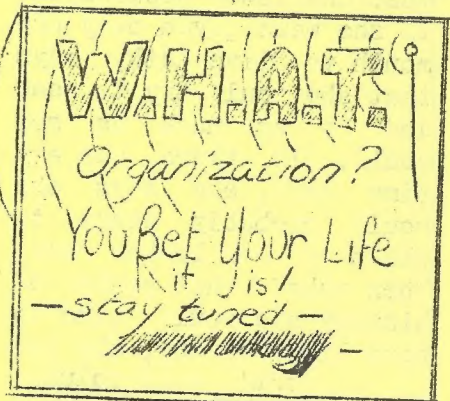 W.H.A.T.
Organization?
You Bet Your Life
it is!
— stay tuned —